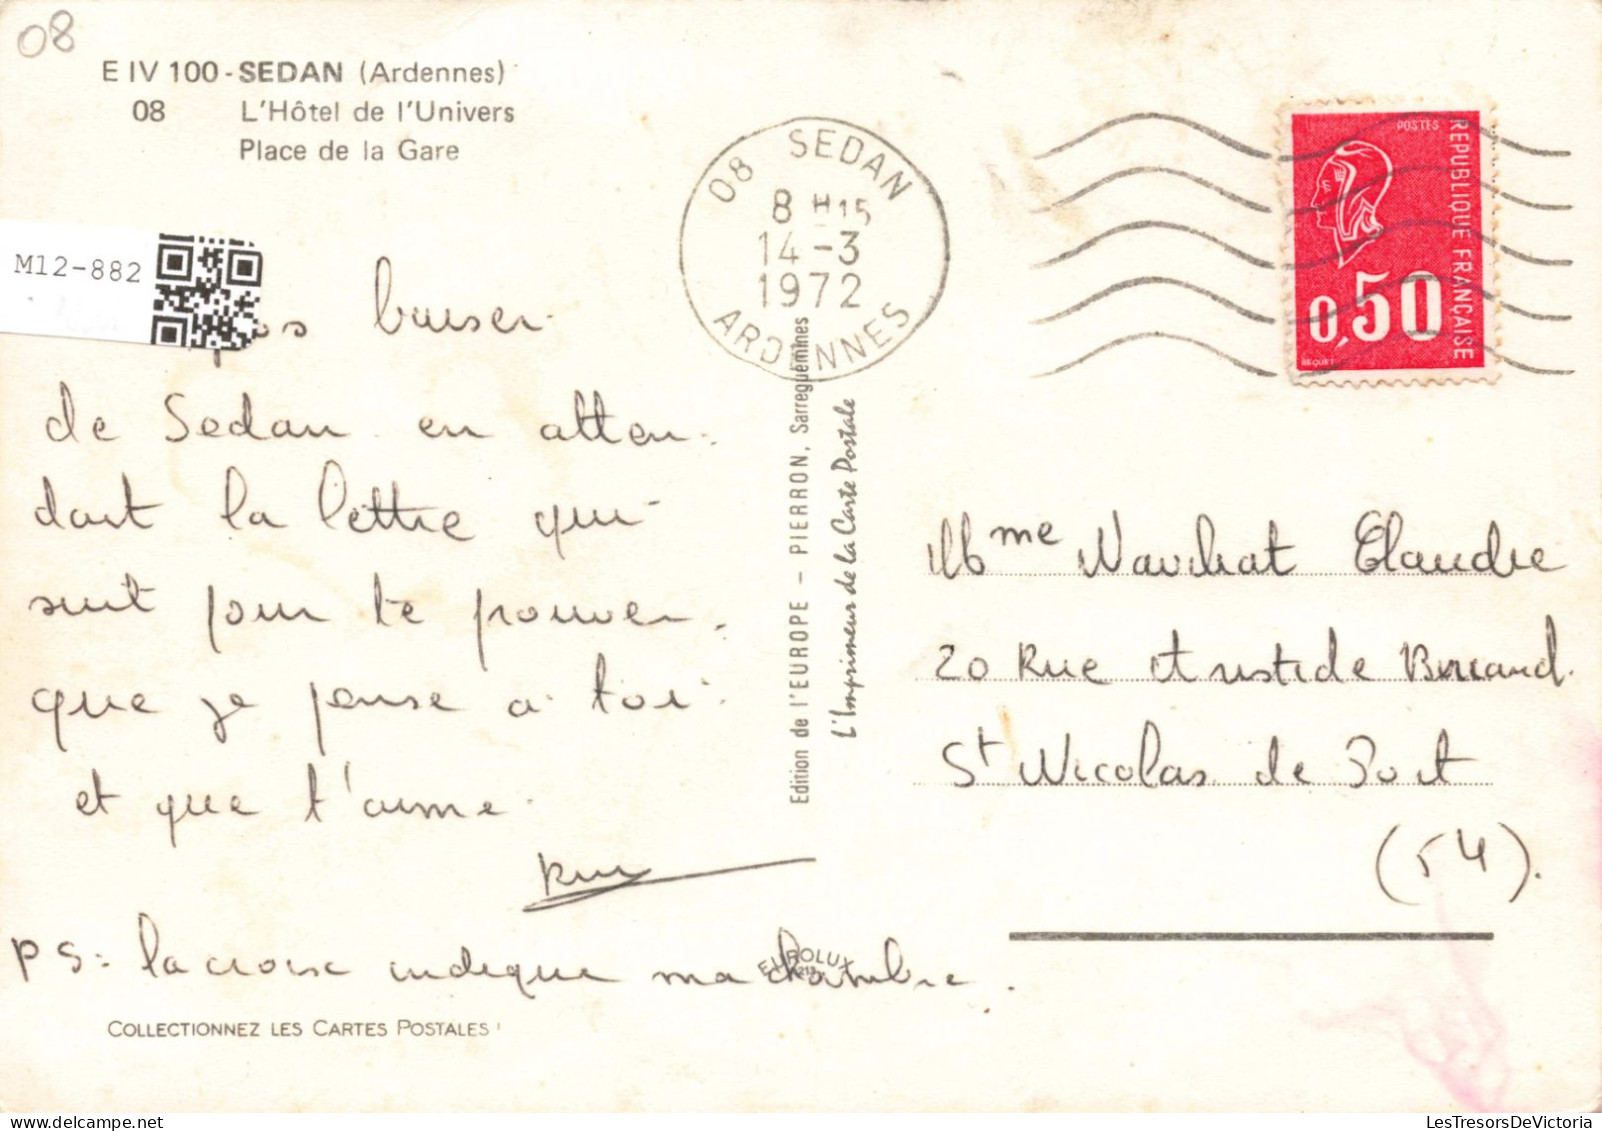 08
E IV 100 - SEDAN (Ardennes)
08 L'Hôtel de l'Univers
Place de la Gare
M12-882
08 SEDAN
8 H 15
14-3
1972
ARDENNES
POSTES
REPUBLIQUE FRANÇAISE
0,50
BEQUET
baiser
de Sedan en atten-
dant la lettre qui
suit pour te prouver
que je pense a toi
et que t'aime
PS: la croix indique ma chambre.
EUROLUX
COLLECTIONNEZ LES CARTES POSTALES !
Edition de l'EUROPE - PIERRON, Sarreguemines
L'Imprimeur de la Carte Postale
Mme Claudie
20 Rue Aristide Briand.
St Nicolas de Port
(54).
LesTresorsDeVictoria.com